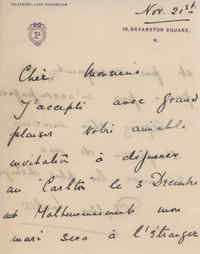 TELEPHONE, 1458 PADDINGTON
Nov. 21st
P
19, BRYANSTON SQUARE,
W.
Cher Monsieur
J'accepte avec grand
plaisir votre aimable
invitation à déjeuner
au "Carlton" le 3 Decembre
Malheureusement mon
mari sera à l'étranger